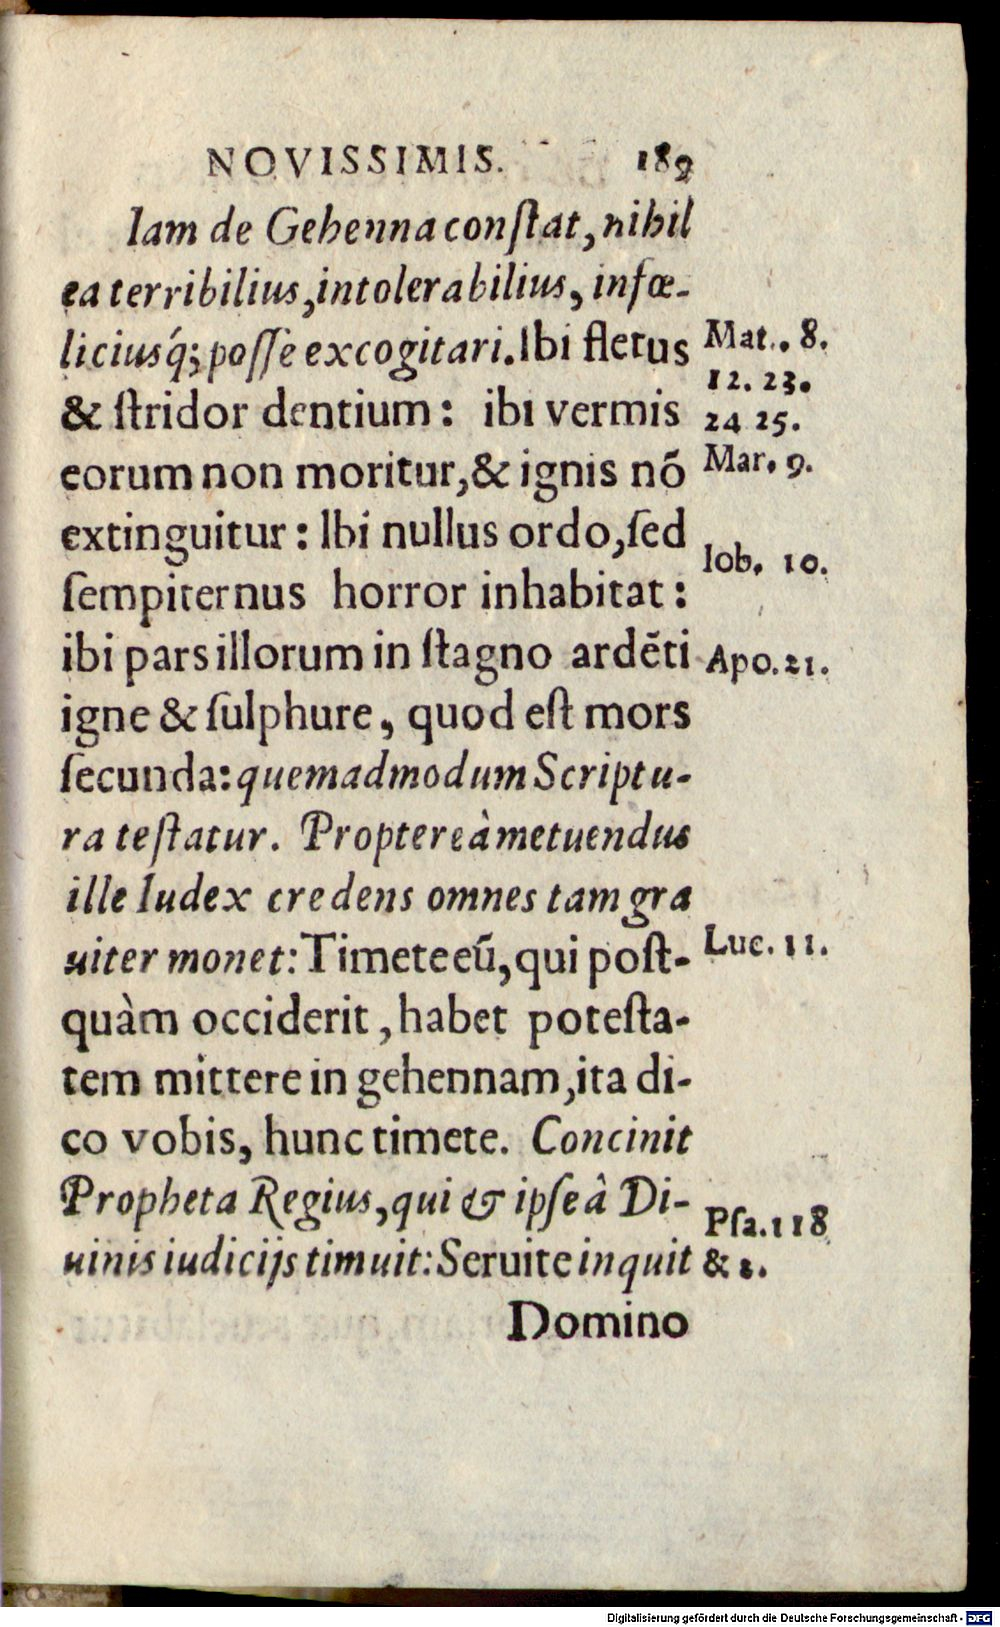 NOVISSIMIS. 189
Iam de Gehenna conſtat, nihil
ea terribilius, intolerabilius, infœ-
liciusq́; poſſe excogitari. Ibi fletus
Mat.. 8.
12. 23.
& ſtridor dentium: ibi vermis
24 25.
eorum non moritur, & ignis nō
Mar. 9.
extinguitur: Ibi nullus ordo, ſed
Iob. 10.
ſempiternus horror inhabitat:
ibi pars illorum in ſtagno ardēti
Apo. 21.
igne & ſulphure, quod eſt mors
ſecunda: quemadmodum Scriptu-
ra teſtatur. Propterea̍̀ metuendus
ille Iudex credens omnes tam gra
uiter monet: Timete eū, qui poſt-
Luc. 11.
quàm occiderit, habet poteſta-
tem mittere in gehennam, ita di-
co vobis, hunc timete. Concinit
Propheta Regius, qui & ipſe â Di-
Pſa. 118
uinis iudicijs timuit: Seruite inquit
& 2.
Domino
Digitalisierung gefördert durch die Deutsche Forschungsgemeinschaft - DFG